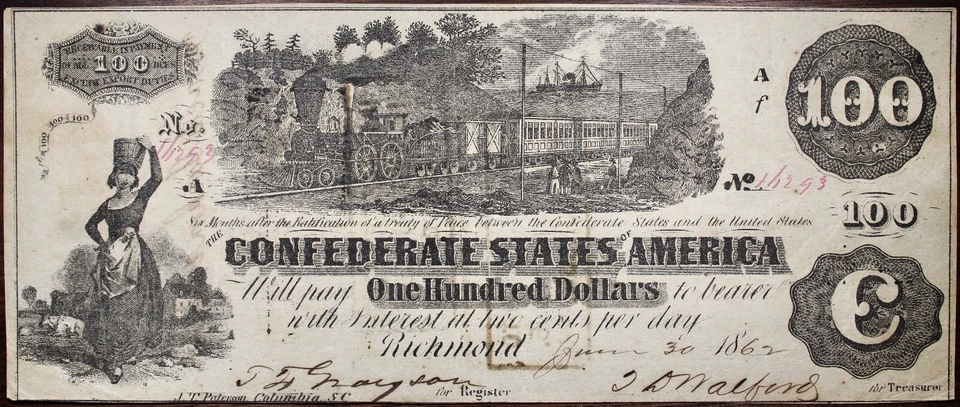 RECEIVABLE IN PAYMENT
OF ALL 100 DUES
EXCEPT EXPORT DUTIES
100 100 100
No. 16293
A
A
f
100
No. 16293
100
Six Months after the Ratification of a treaty of Peace between the Confederate States and the United States
THE CONFEDERATE STATES OF AMERICA
Will pay One Hundred Dollars to bearer
with Interest at two cents per day
Richmond June 30 1862
C
for Register
for Treasurer
J. T. Paterson Columbia, S.C